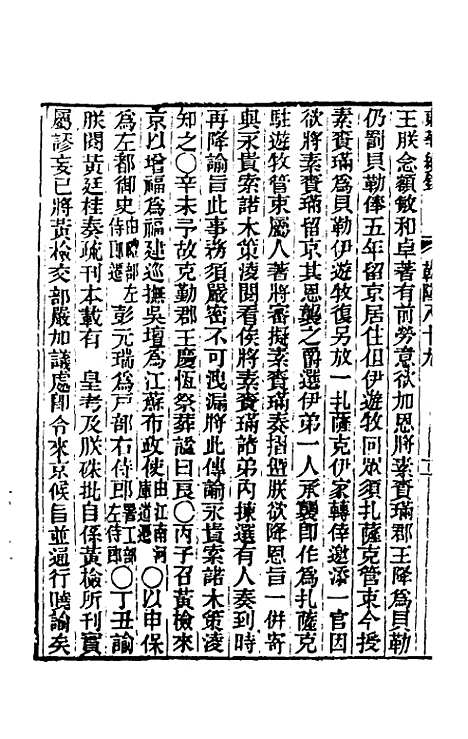 東華續錄　乾隆八十九
王朕念額敏和卓著有前勞意欲加恩將素賚璊郡王降爲貝勒
仍罰貝勒俸五年留京居住但伊遊牧回眾須扎薩克管束今授
素賚璊爲貝勒伊遊牧復另放一扎薩克伊家轉倖邀添一官因
欲將素賚璊留京其恩襲之爵選伊弟一人承襲即作爲扎薩克
駐遊牧管束屬人著將審擬素賚璊奏摺暨朕欲降恩旨一併寄
與永貴索諾木策淩閱看俟將素賚璊諸弟內揀選有人奏到時
再降諭旨此事務須嚴密不可洩漏將此傳諭永貴索諾木策淩
知之〇辛未予故克勤郡王慶恆祭葬諡曰良〇丙子召黃檢來
京以增福爲福建巡撫吳壇爲江蘇布政使由江南河庫道遷〇以申保
爲左都御史由理部左侍郎遷彭元瑞爲戶部右侍郎署工部左侍郎〇丁丑諭
朕閱黃廷桂奏疏刊本載有　皇考及朕硃批自係黃檢所刊實
屬謬妄已將黃檢交部嚴加議處即令來京候旨並通行曉諭矣